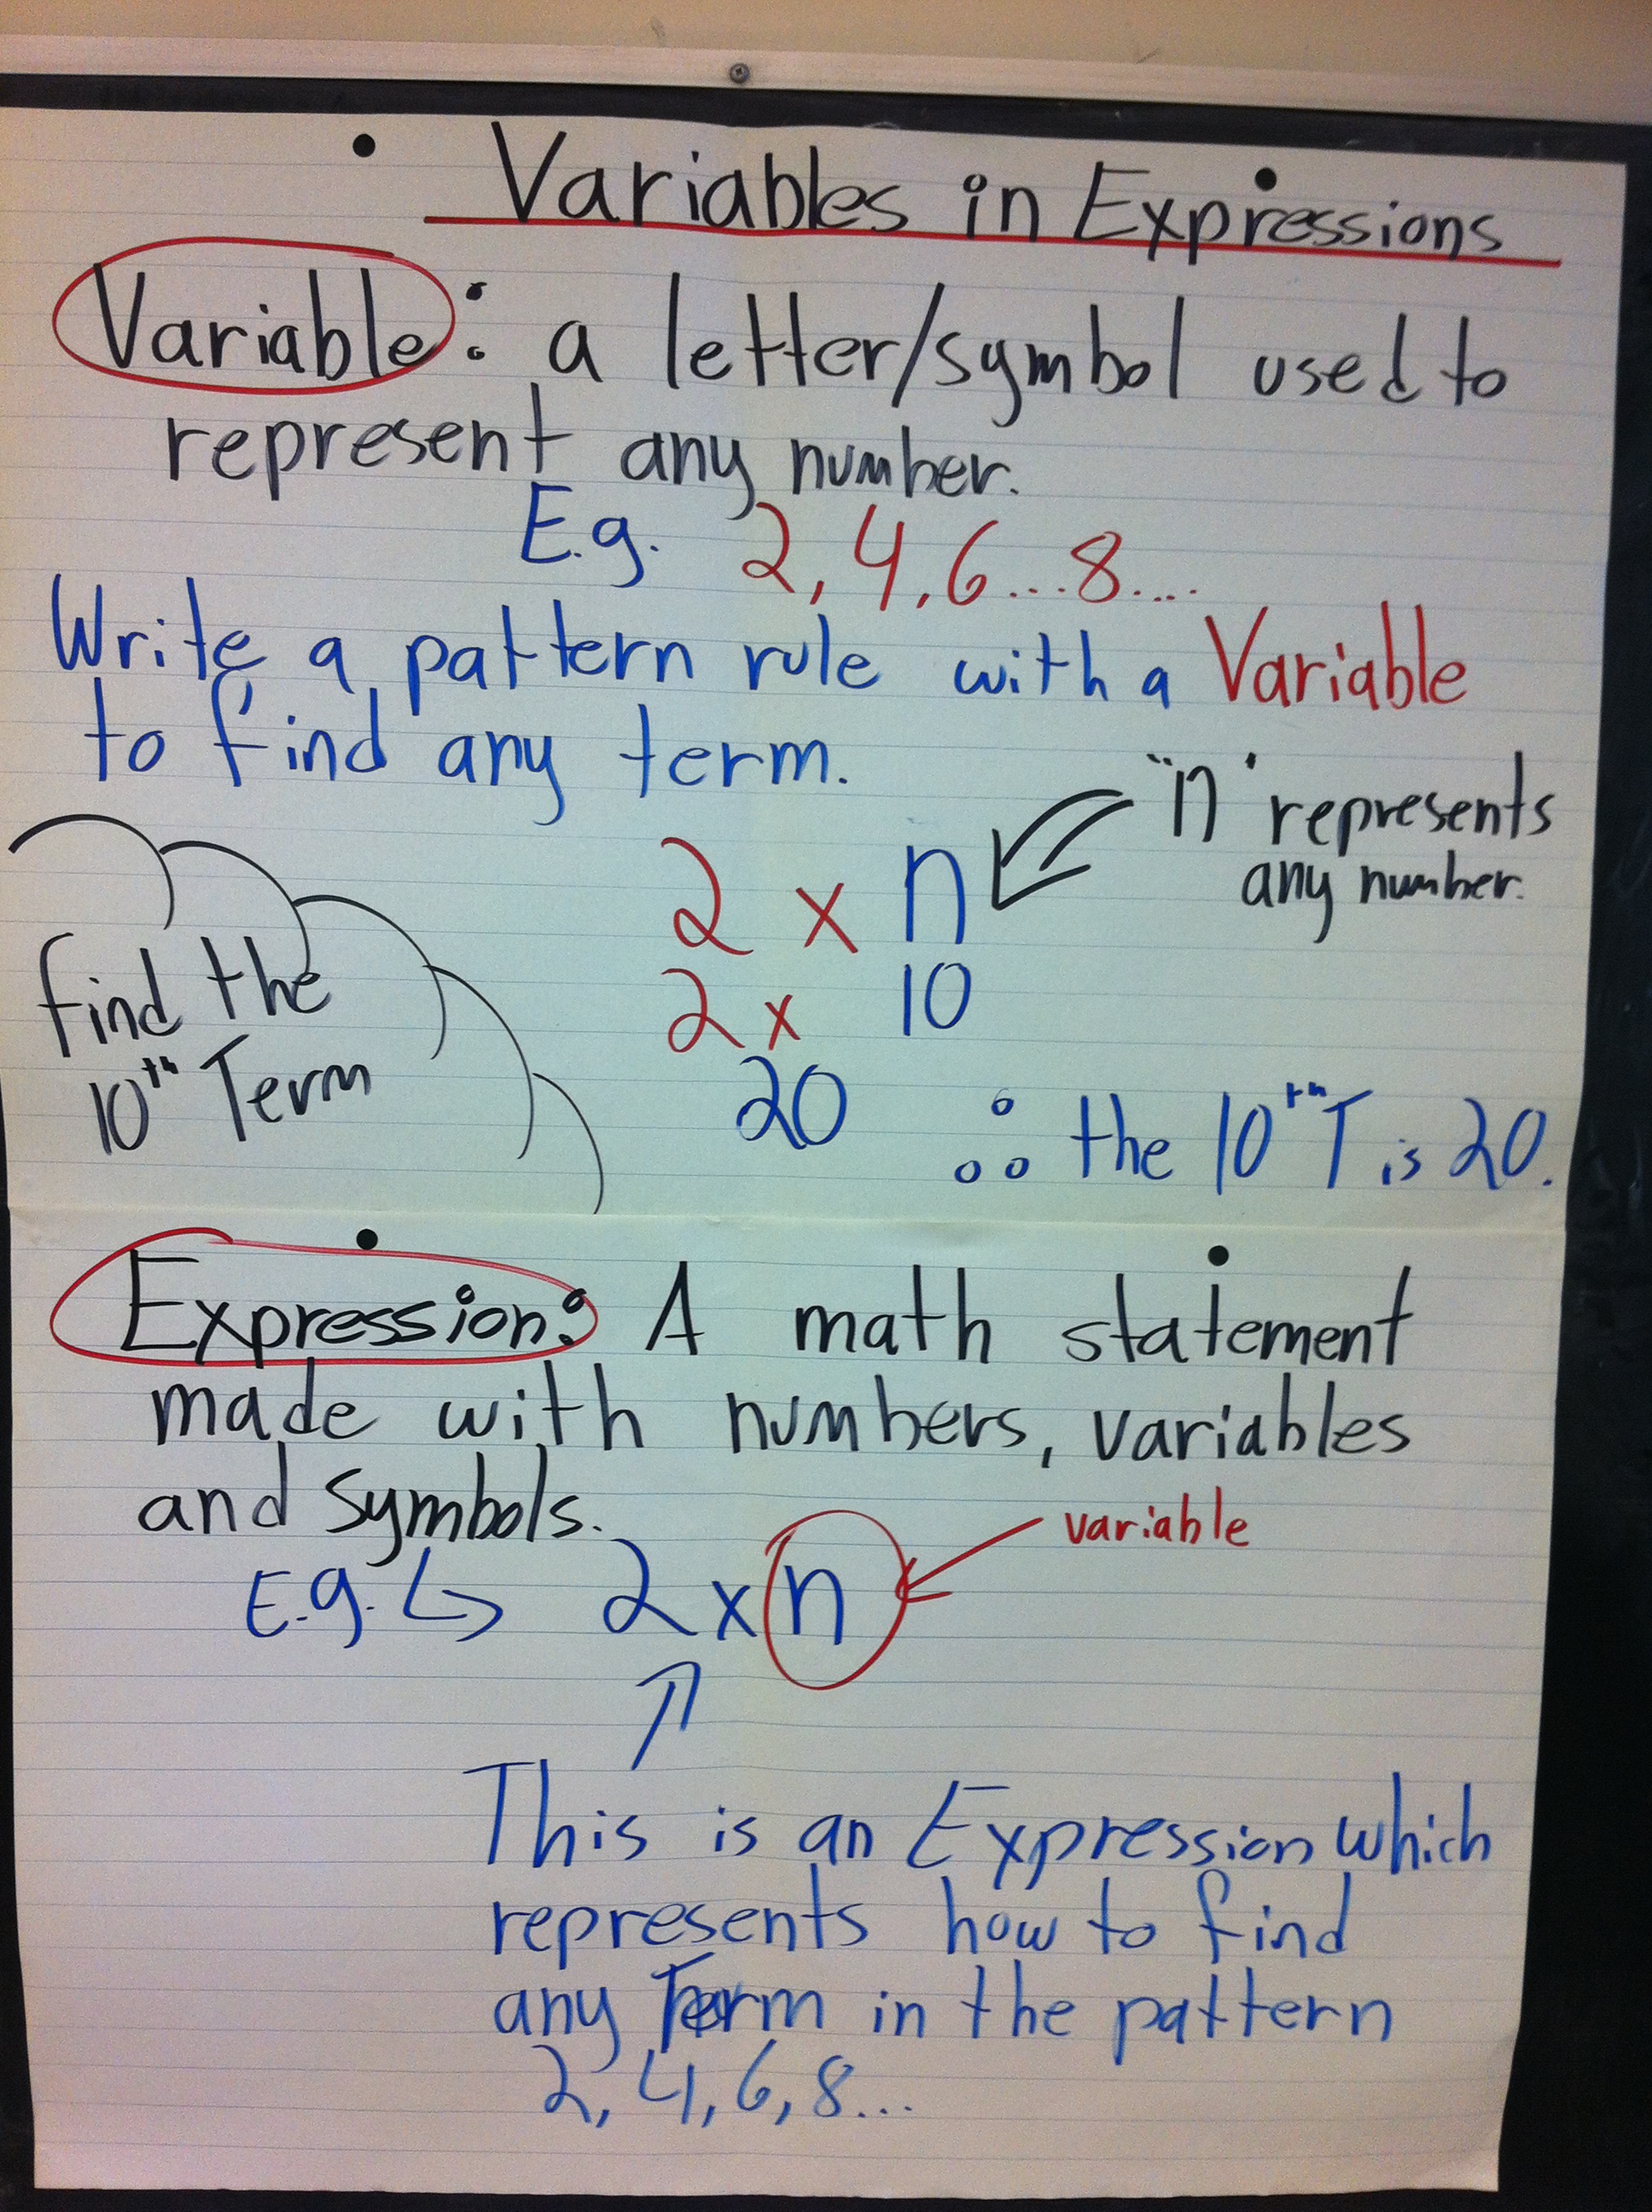 Variables in Expressions
Variable: a letter/symbol used to
represent any number.
E.g. 2, 4, 6...8....
Write a pattern rule with a Variable
to find any term.
"n" represents
any number.
2 x n
2 x 10
20
find the
10th Term
∴ the 10th T is 20.
Expression: A math statement
made with numbers, variables
and symbols.
variable
E.g. ↳ 2 x n
This is an Expression which
represents how to find
any Term in the pattern
2, 4, 6, 8...